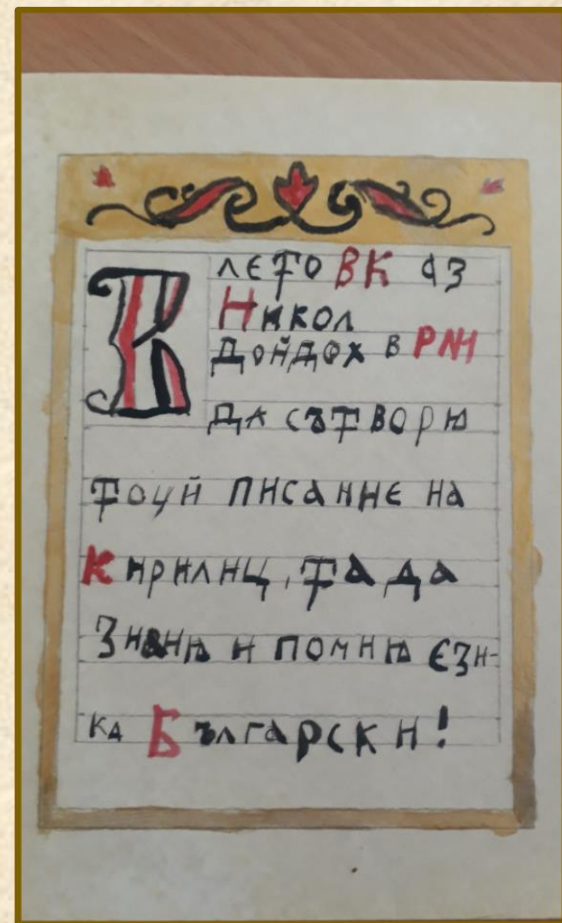 В
лето ВК аз
Никол
дойдох в РNН
да сътворѭ
тоуй писание на
Кирилиц, та да
Знанѩ и помнѩ єзи-
ка Български!